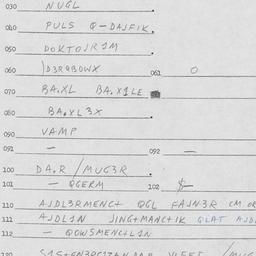 030 NUGL
040 PULS Q-DAJFIK.
050 DOKTOJR1M
060 1D3R9BOWX 061 O
070 BA.XL BA.X1LE
080 BA.XL3X
090 VAMP
091 - 092 -
100 DA.R/MUG3R
101 - QGERM 102 $-
110 AJDL3RMENG+ QGL FAJN3R CM OR
111 AJDL1N JING+MANC+IK QLAT AJD
112 - QOWSMENCIL1N